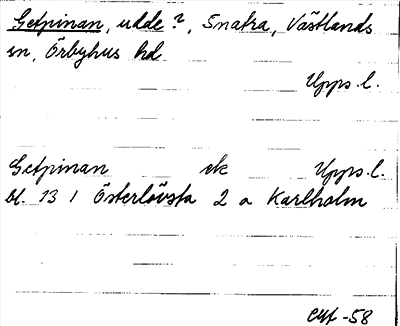 Getpinan, udde?, Snatra, Västlands
sn, Örbyhus hd
Upps. l.
Getpinan ek Upps. l.
bl. 13 1 Österlövsta 2 a Karlholm
-58